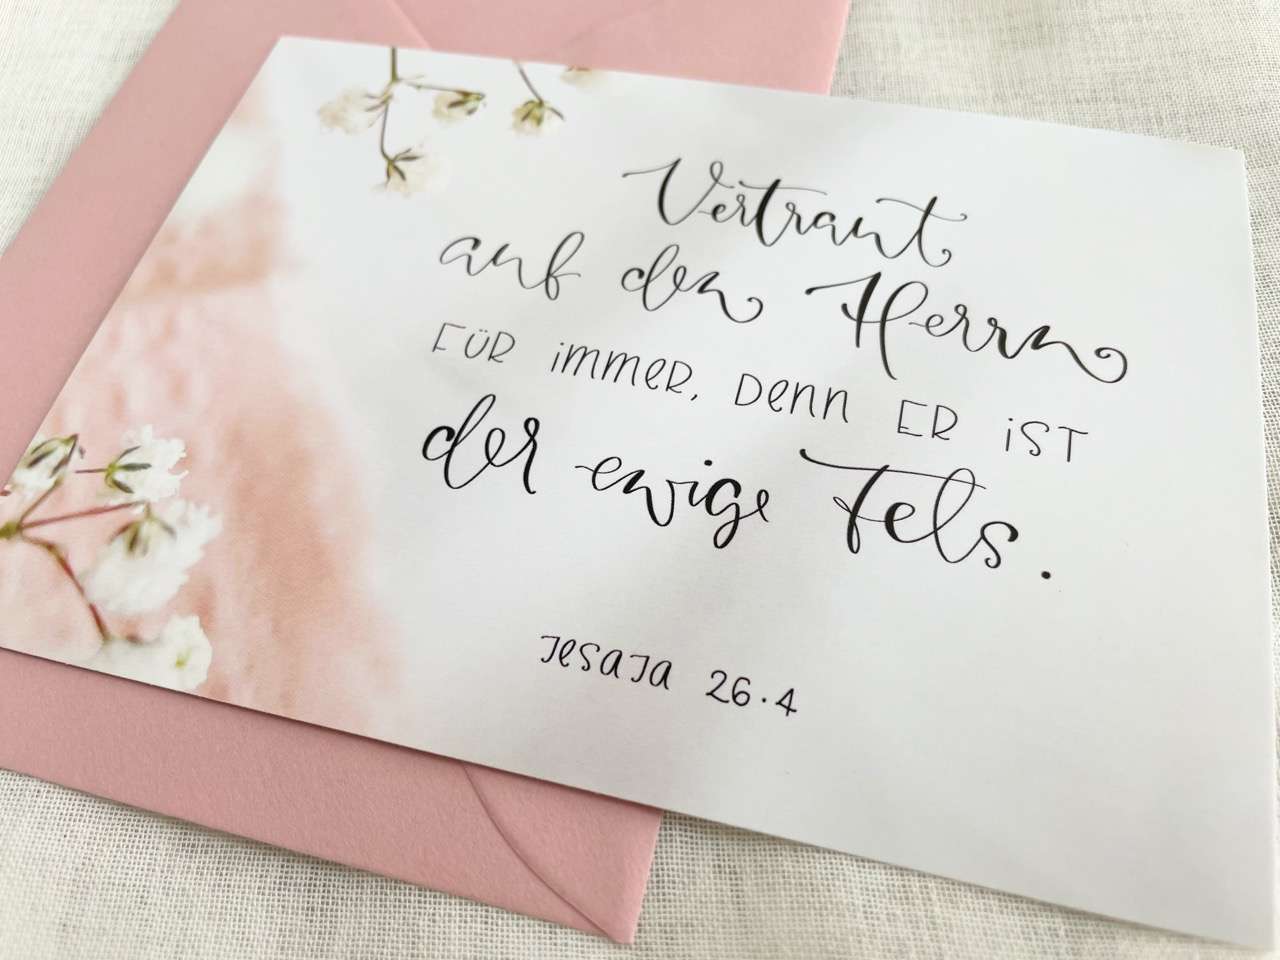 Vertraut
auf den Herrn
FÜR immer, Denn ER iST
der ewige Fels.
Jesaja 26.4